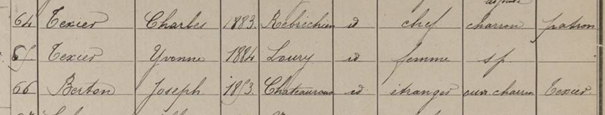 64 Texier Charles 1883 Rebréchien id chef charron patron
65 Texier Yvonne 1884 Loury id femme sp
66 Berton Joseph Chateauroux id étranger ouv charron Texier